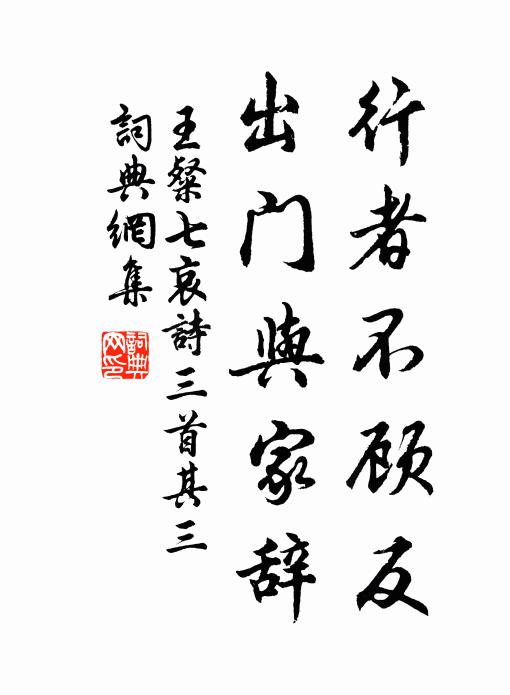 行者不顾反
出门與家辞
王粲七哀詩三首其三
詞典網集
詞典网印